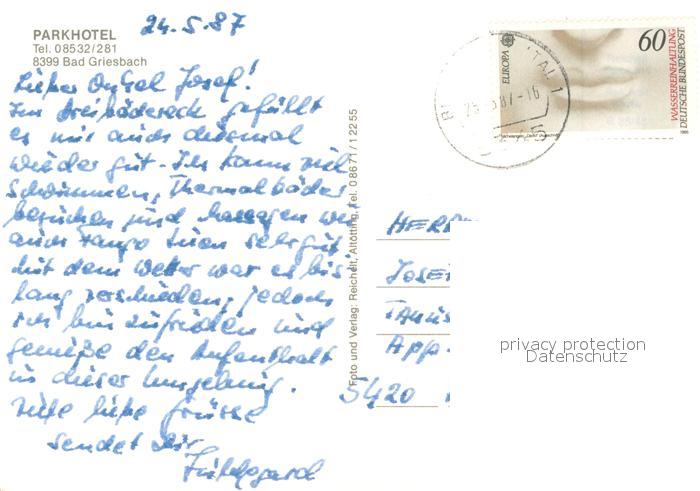 24.5.87
PARKHOTEL
Tel. 08532/281
8399 Bad Griesbach
Lieber Onkel Josef!
Im Dreibädereck gefällt
es mir auch diesmal
wieder gut. Ich kann viel
schwimmen, Thermalbäder
besuchen und Massagen
auch Fango tuen sehr gut
Mit dem Wetter war es bis
lang verschieden, jedoch
ich bin zufrieden und
genieße den Aufenthalt
in dieser Umgebung.
Viele liebe Grüsse
sendet Dir
Hildegard
Foto und Verlag: Reichelt, Altötting, Tel. 08671/12255
EUROPA
60
WASSERREINHALTUNG
DEUTSCHE BUNDESPOST
TAL 1
87-16
HERR
JOSE
TAUS
APP.
5420
privacy protection
Datenschutz